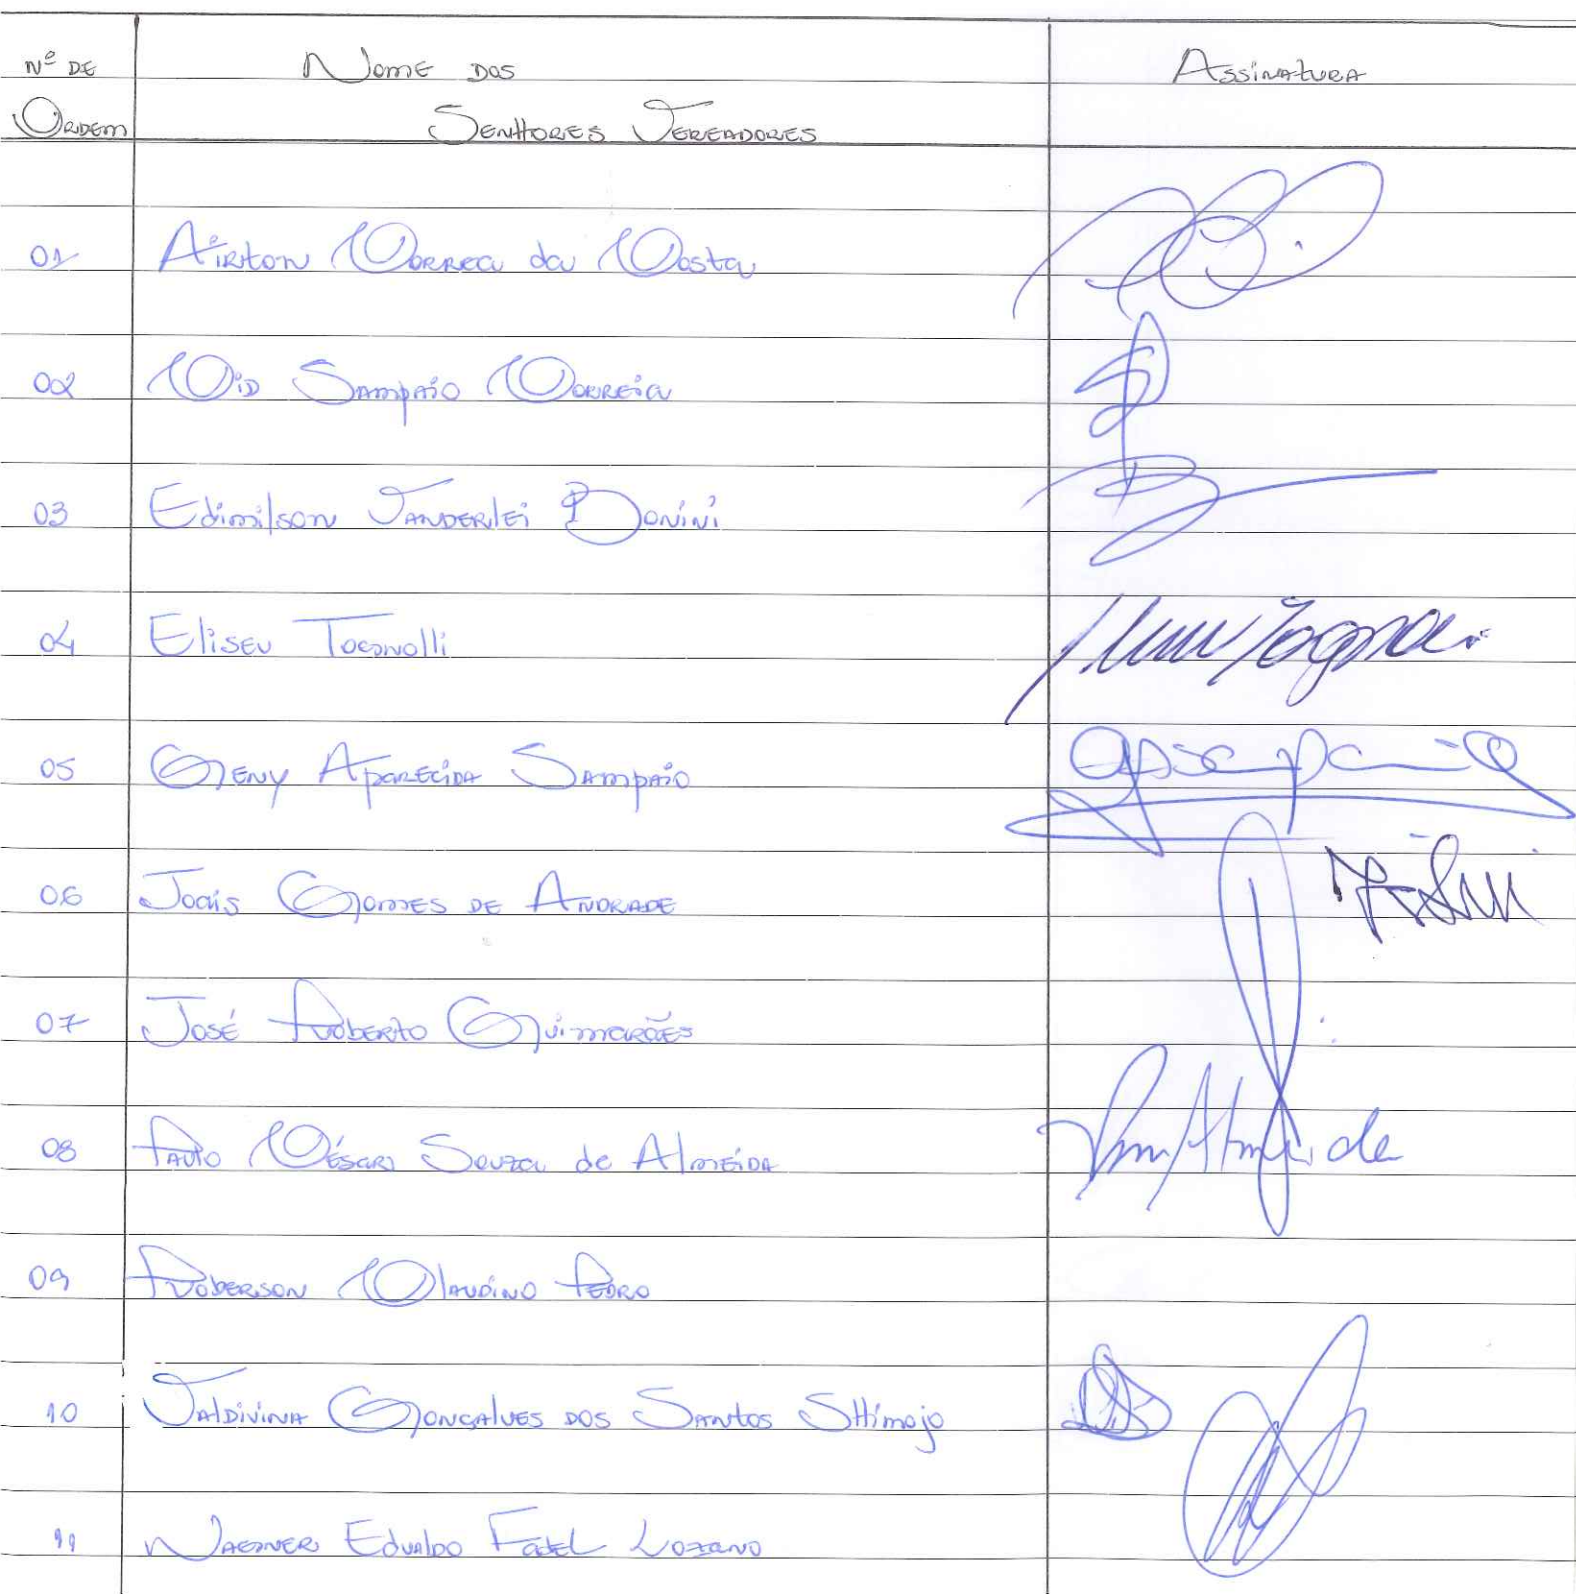 Nº DE Nome DOS Assinatura
Ordem Senhores Vereadores
01 Airton Correa da Costa
02 Cid Sampaio Correia
03 Edimilson Vanderlei Bonini
04 Eliseu Tognolli
05 Geny Aparecida Sampaio
06 Joais Gomes de Andrade
07 José Roberto Guimarães
08 Paulo César Souza de Almeida
09 Roberson Claudino Pedro
10 Valdivina Gonçalves dos Santos Shimojo
11 Wagner Edvaldo Fadel Lozano